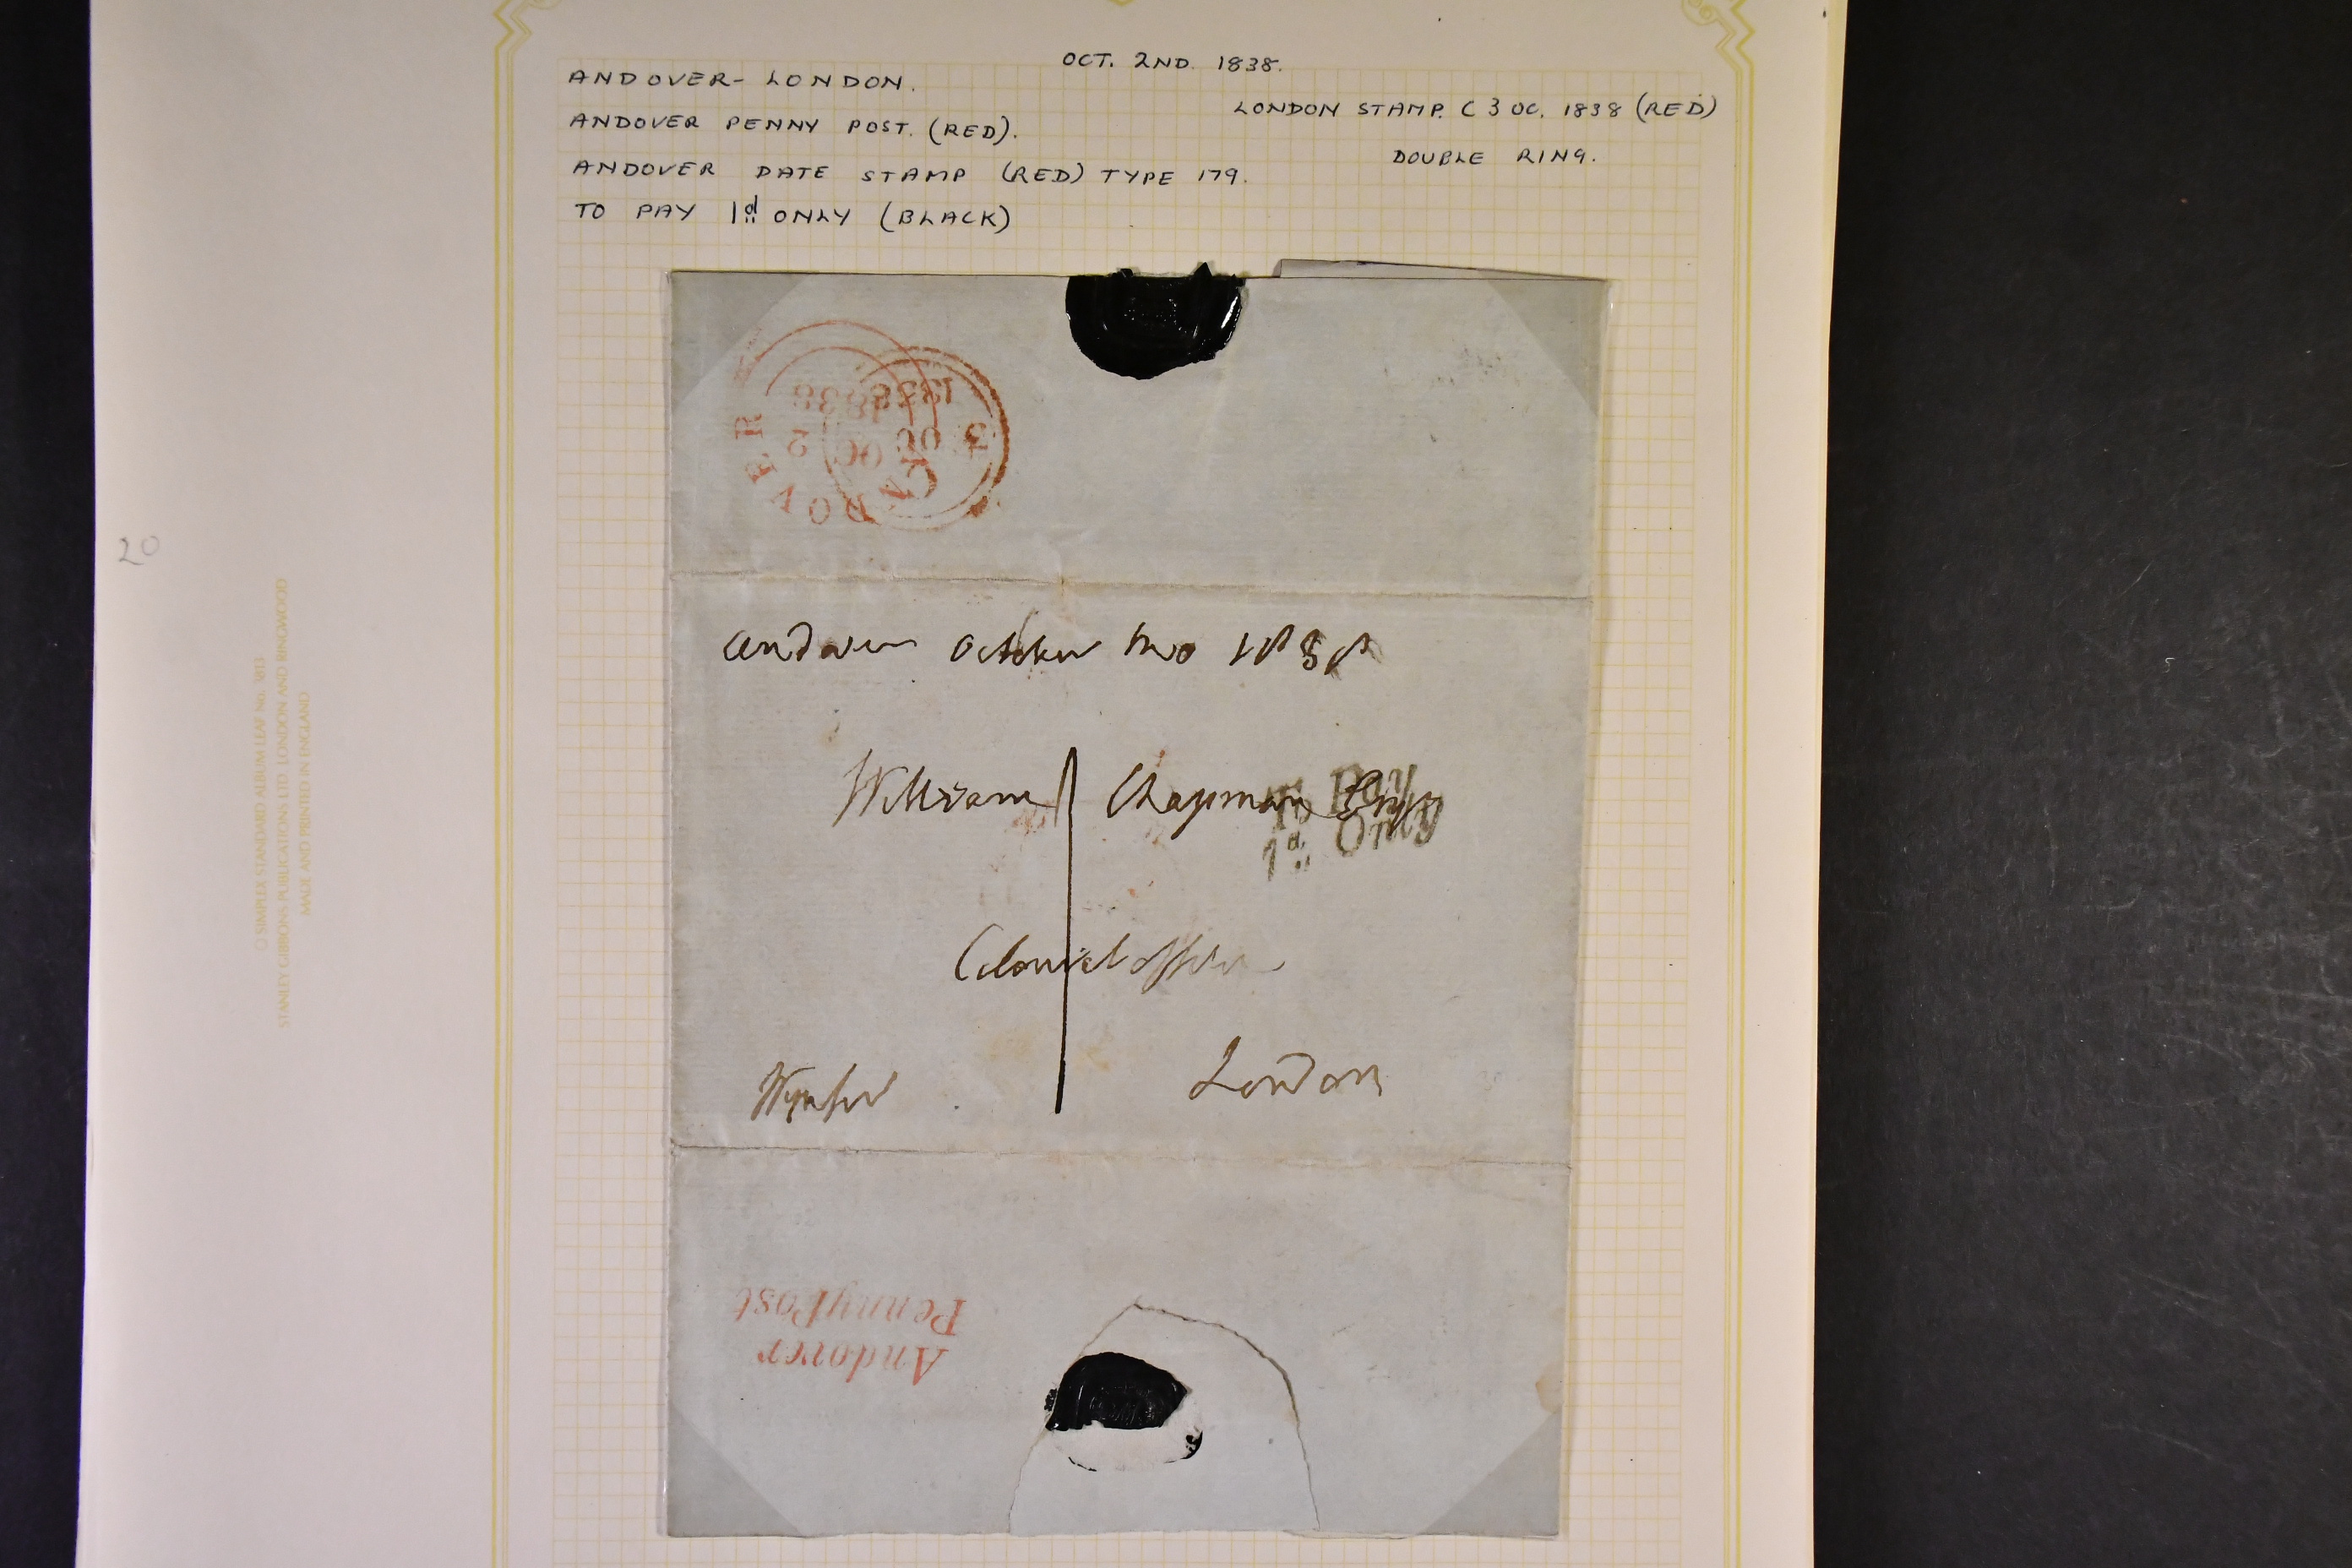 OCT. 2ND. 1838.
ANDOVER - LONDON.
LONDON STAMP. C 3 OC. 1838 (RED)
ANDOVER PENNY POST. (RED).
DOUBLE RING.
ANDOVER DATE STAMP (RED) TYPE 179.
TO PAY 1d ONLY (BLACK)
ANDOVER
OC 2
1838
C
3 OC
1838
20
© SIMPLEX STANDARD ALBUM LEAF No. 3813
STANLEY GIBBONS PUBLICATIONS LTD. LONDON AND RINGWOOD
MADE AND PRINTED IN ENGLAND
Andover October two 1838
William Chapman Esqr
To Pay
1d Only
Colonial Office
London
Andover
Penny Post